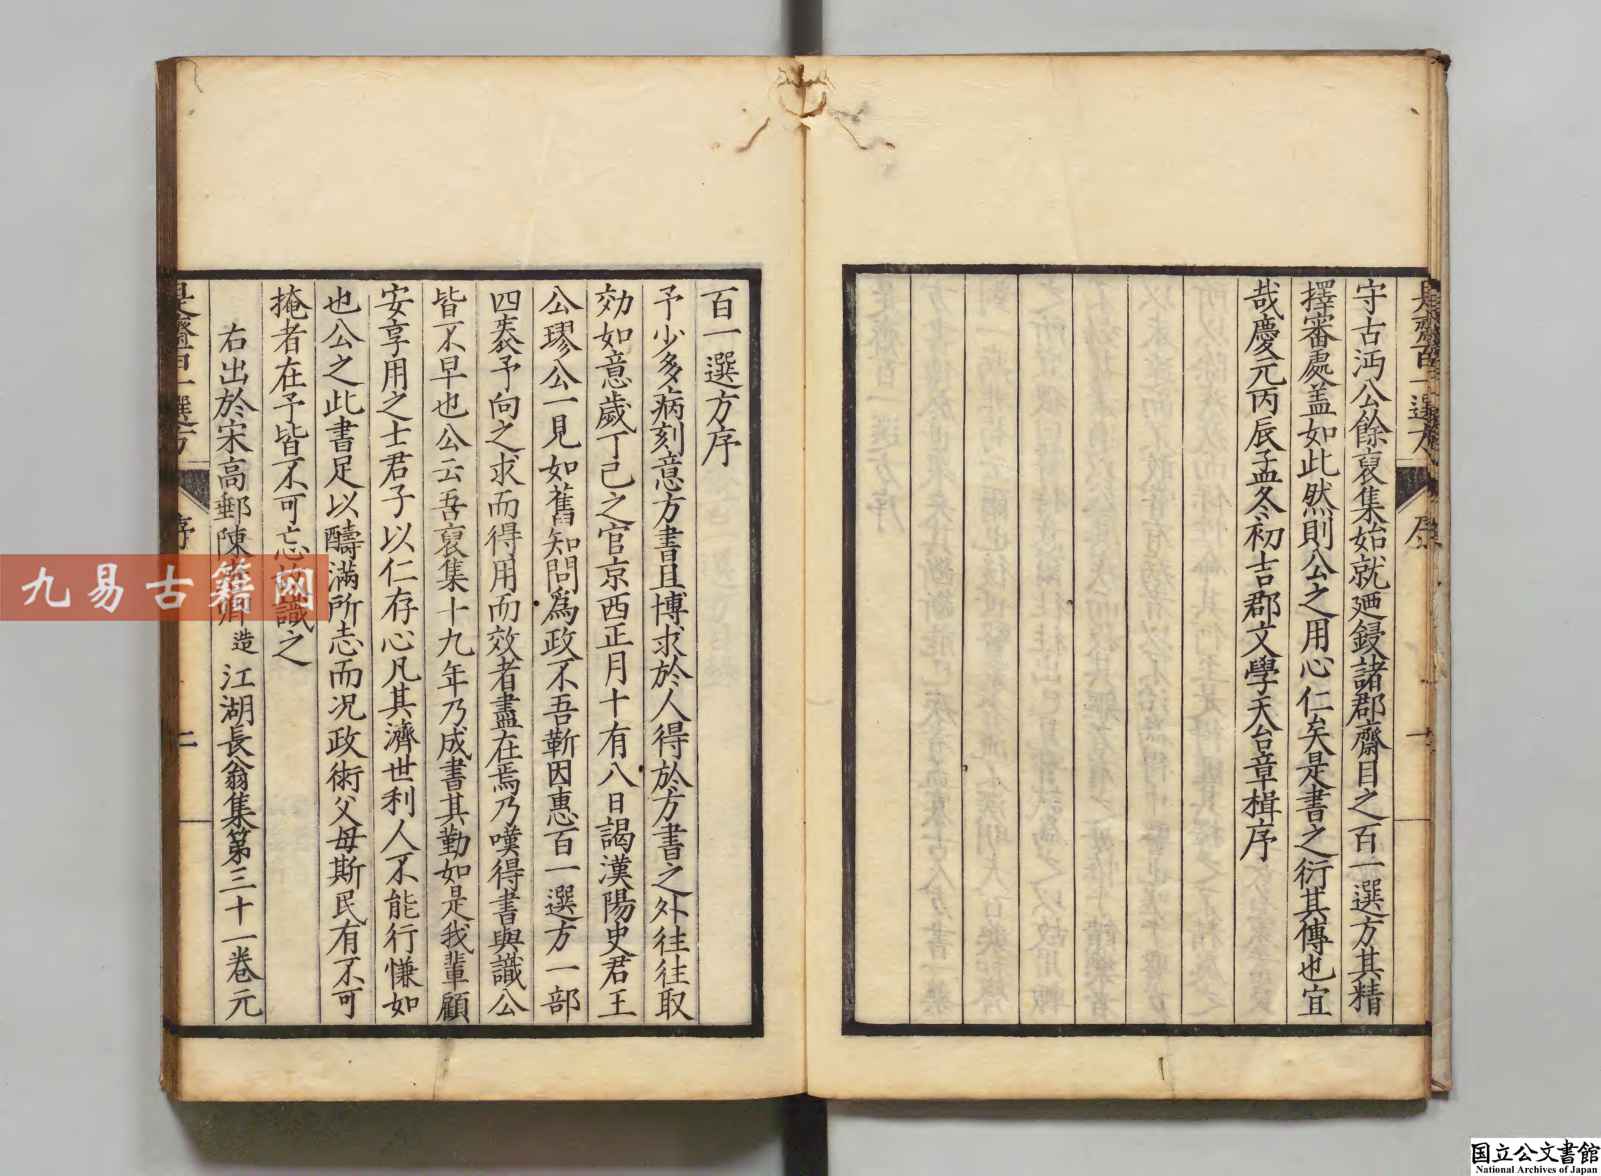 是齋百一選方
序
一
守古沔公餘裒集始就廼鋟諸郡齋目之百一選方其精
擇審處盖如此然則公之用心仁矣是書之衍其傳也宜
哉慶元丙辰孟冬初吉郡文學天台章楫序
百一選方序
予少多病刻意方書且博求於人得於方書之外往往取
効如意歲丁己之官京西正月十有八日謁漢陽史君王
公璆公一見如舊知問為政不吾靳因惠百一選方一部
四袠予向之求而得用而效者盡在焉乃嘆得書與識公
皆不早也公云吾裒集十九年乃成書其勤如是我輩顧
安享用之士君子以仁存心凡其濟世利人不能行慊如
也公之此書足以醻滿所志而况政術父母斯民有不可
掩者在予皆不可忘 識之
右出於宋高郵陳 造江湖長翁集第三十一卷元
是齋百一選方
序
二
九易古籍网
国立公文書館
National Archives of Japan